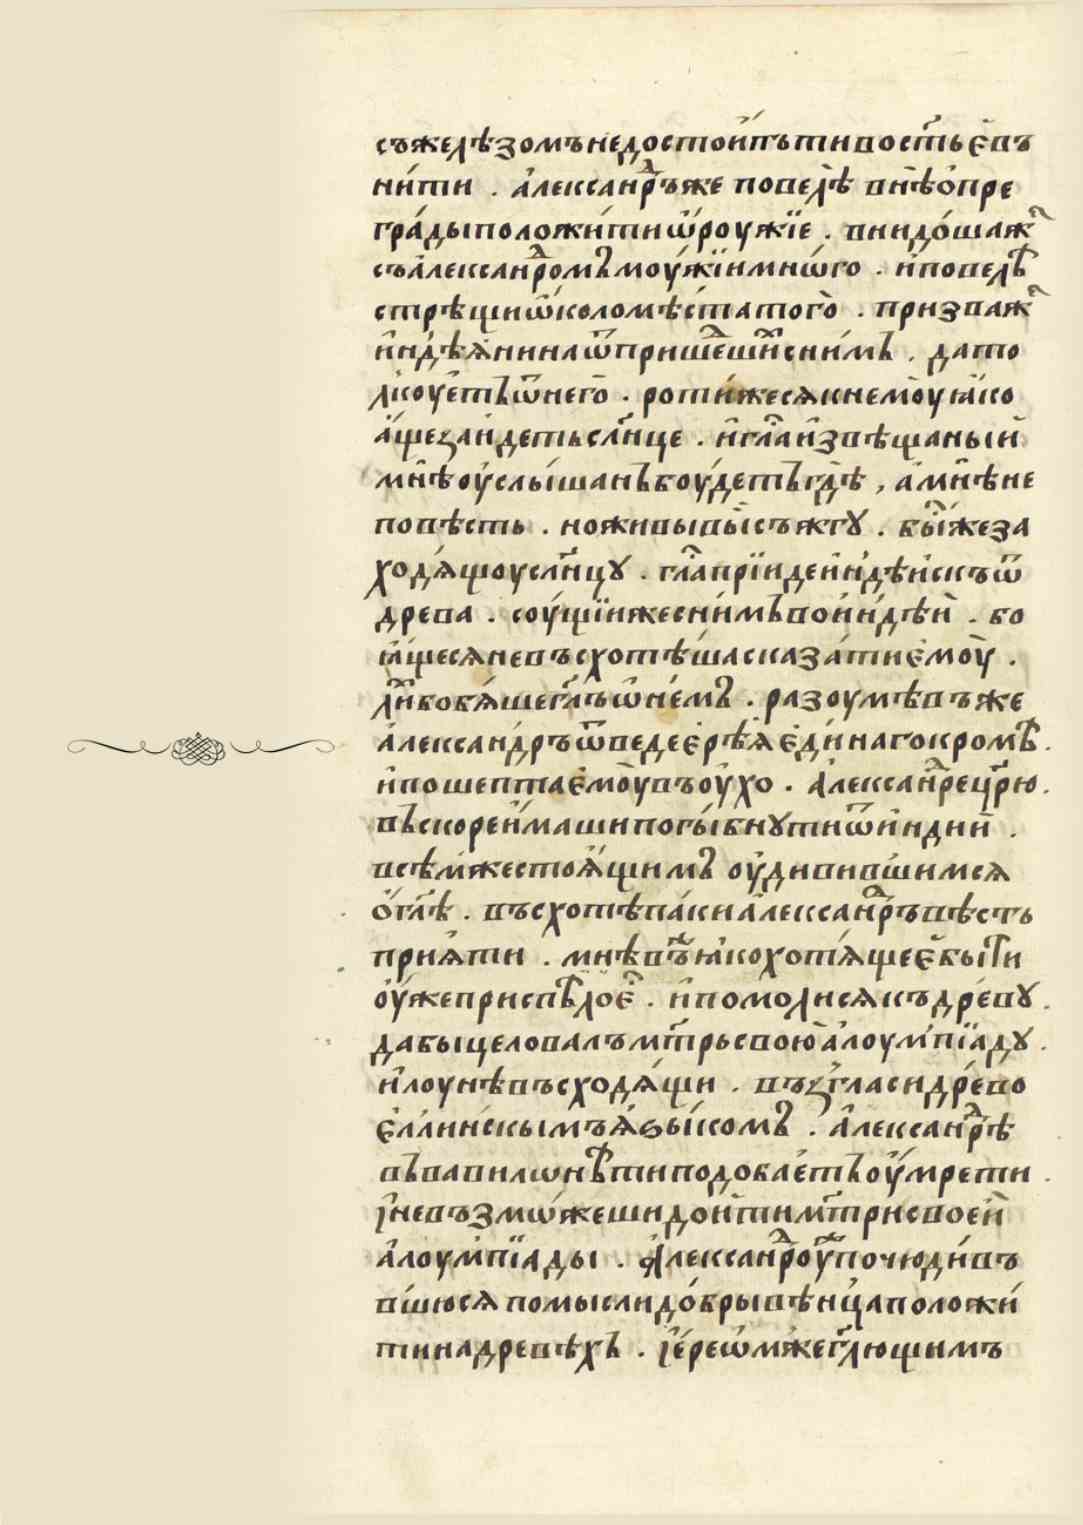 съжелѣзомъ недостоитъ ти востⷭ҇ъ є҆въ
ни́ти . а҆леѯанⷣръже повелѣ̀ внѣ ѻ҆пре
гра́ды положи́ти ѡ҆роужїе . внидо́шажⷤ
съ а҆лександⷬ҇омъ моу́жїи мнѡ́го . и҆ повелѣ̀
стрѣщи ѡ҆коло мѣ́ста того̀ . призважⷤ
и҆ндѣ́ꙗнина ѿ прише́шиⷯ с ни́мъ . да то
лкоуетъ ѿ него̀ . роти́жеся к немоу̀ ꙗ҆ко
а҆́ще заи́деть слн҃це . и҆ гла҃ и҆звѣщаныи̇
мнѣ̀ оу҆слы́шанъ боу́детъ гдѣ̀ , а҆ мнѣ̀ не
повѣсть . но живы вы̀ съжгꙋ . бы́жⷭ҇е за
ходѧ́щоу слн҃цꙋ . гла҃ прїиде и҆ндѣи́скъ ѿ
древа . соу́щїи же с ни́мъ во и҆́ндѣи̇ . бо
ꙗ҆щеся не въсхотѣ́ша сказа́ти є҆моу̀ .
ли҃бо бѧ́ше гл҃ъ ѡ҆ не́мъ . разоумѣвъ же
а҆леѯа́ндръ ѿведе є҆рѣ́ѧ є҆ди́наго кромѣ̀ .
и҆ пошепта є҆моу̀ въ оу҆́хо . а҆лексанⷣре цр҃ю .
въскорѣ и҆маши погы́бнꙋти ѿ и҆́ндии̇ .
всѣ́мже стоѧ́щимъ оу҆дививши́мся
ѡ҆ глⷭ҇ѣ . въсхотѣ па́ки а҆лексанⷣръ вѣсть
приѧ́ти . мнѣвⷲ҇ъ ꙗ҆ко хотѧ́щее бы́ⷭ҇ти
оу҆́же приспѣ̀ лоє҆ . и҆ помоли́ся къ дре́вꙋ .
да бы целовалъ мт҃рь свою̀ а҆лоумпїадꙋ .
и҆ лоунѣ въсходѧ́щи . възгласи дре́во
є҆́ллинскымъ ꙗ҆зы́комъ . а҆лексанⷣрѣ
въ вавилѡнѣ̀ ти подобаетъ оу҆мрети .
і҆ не възмо́жеши дои́ти мт҃ри своеи̇
а҆лоумпїады . а҆лексанⷣроу почюди́въ
в́шюся помысли до́бры вѣнца положи́
ти на древѣхъ . і҆ерео́мже гл҃ющимъ